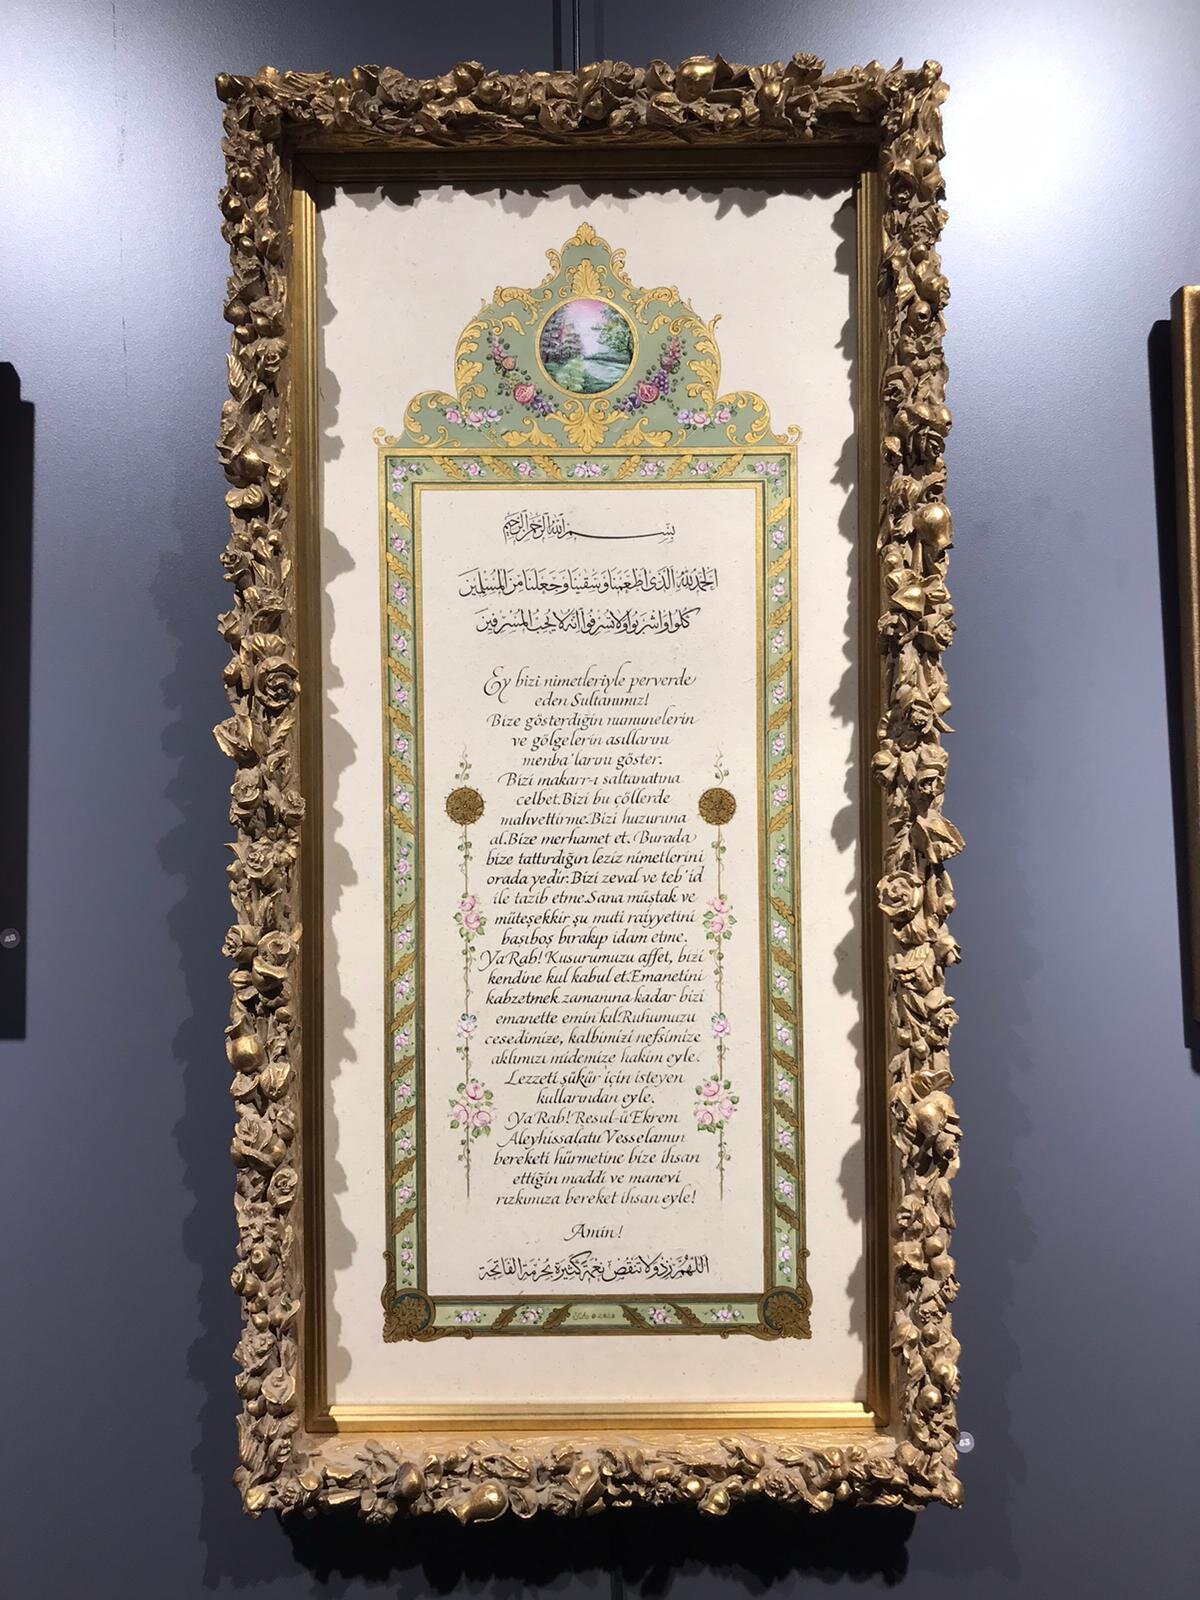 بسم الله الرحمن الرحيم
الحمد لله الذى اطعمنا وسقينا وجعلنا من المسلمين
كلوا واشربوا ولا تسرفوا انه لا يحب المسرفين
Ey bizi nimetleriyle perverde
eden Sultanımız!
Bize gösterdiğin numunelerin
ve gölgelerin asıllarını
menba'larını göster.
Bizi makarr-ı saltanatına
celbet.Bizi bu çöllerde
mahvettirme.Bizi huzuruna
al.Bize merhamet et. Burada
bize tattırdığın leziz nimetlerini
orada yedir.Bizi zeval ve teb'id
ile tazib etme.Sana müştak ve
müteşekkir şu muti raiyyetini
başıboş bırakıp idam etme.
Ya Rab! Kusurumuzu affet, bizi
kendine kul kabul et.Emanetini
kabzetmek zamanına kadar bizi
emanette emin kıl.Ruhumuzu
cesedimize, kalbimizi nefsimize
aklımızı midemize hakim eyle.
Lezzeti şükür için isteyen
kullarından eyle.
Ya Rab! Resul-ü Ekrem
Aleyhissalatu Vesselamın
bereketi hürmetine bize ihsan
ettiğin maddi ve manevi
rızkımıza bereket ihsan eyle!
Amin!
اللهم زد ولا تنقص نعمة كثيرة بحرمة الفاتحة
48
63